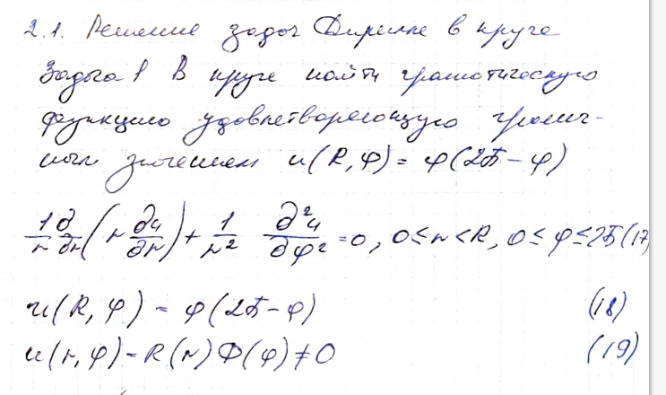 2.1. Решение задач Дирихле в круге
Задача 1 В круге найти гармоническую
функцию удовлетворяющую гранич-
ным значениям u(R, φ) = φ(2π - φ)
1/r ∂/∂r (r ∂u/∂r) + 1/r² ∂²u/∂φ² = 0, 0 ≤ r < R, 0 ≤ φ ≤ 2π (17)
u(R, φ) = φ(2π - φ) (18)
u(r, φ) = R(r) Φ(φ) ≠ 0 (19)